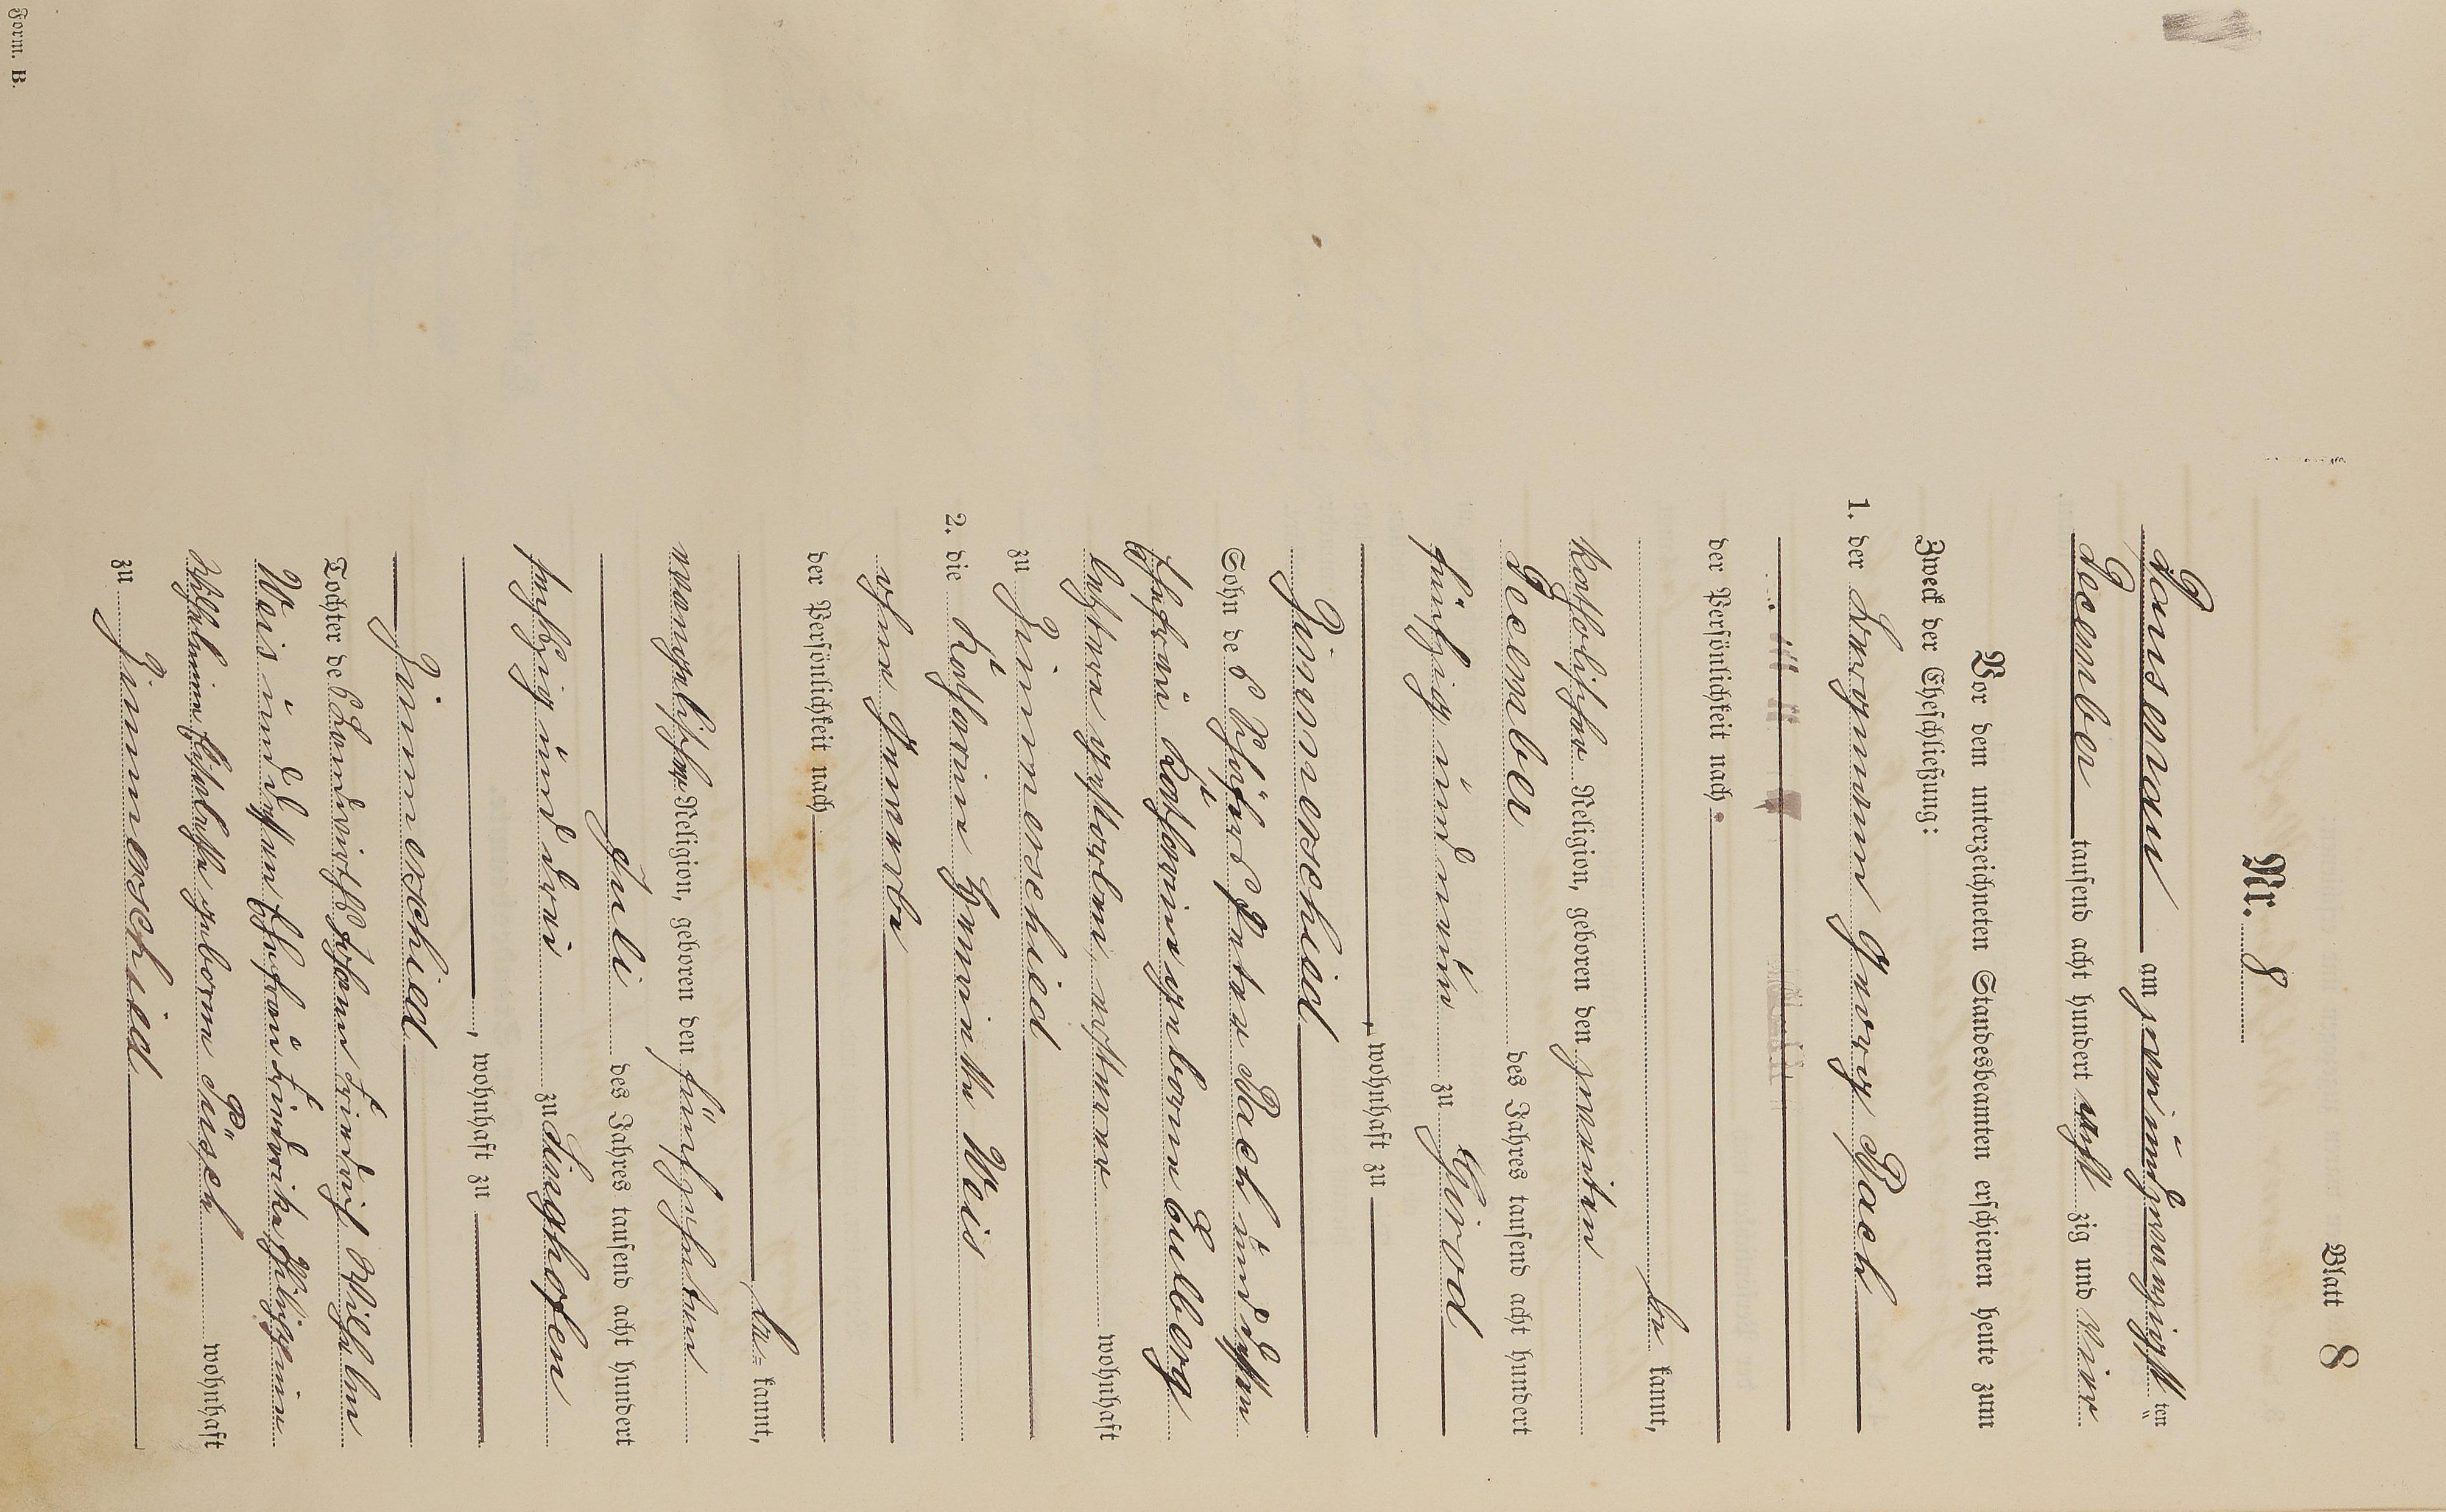 Blatt 8
Nr. 8
Dausenau am zweiundzwanzigst ten
December tausend acht hundert achtzig und vier
Vor dem unterzeichneten Standesbeamten erschienen heute zum
Zweck der Eheschließung:
1. der Bergmann Georg Bach
der Persönlichkeit nach
be kannt,
katholischer Religion, geboren den zweiten
December des Jahres tausend acht hundert
fünfzig und neun zu Girod
, wohnhaft zu
Zimmerschied
Sohn des Schäfers Peter Bach und dessen
Ehefrau Katharine geborne Eulberg
letztere verstorben, ersterer wohnhaft
zu Zimmerschied
2. die Katharine Henriette Weis
ohne Gewerbe
der Persönlichkeit nach
be= kannt,
evangelischer Religion, geboren den fünfzehnten
Juli des Jahres tausend acht hundert
sechszig und drei zu Singhofen
, wohnhaft zu
Zimmerschied
Tochter des Landwirths Johann Friedrich Wilhelm
Weis und dessen Ehefrau Friedrike Philippine
Wilhelmine Elisabethe geborne Püsch wohnhaft
zu Zimmerschied
Form. B.